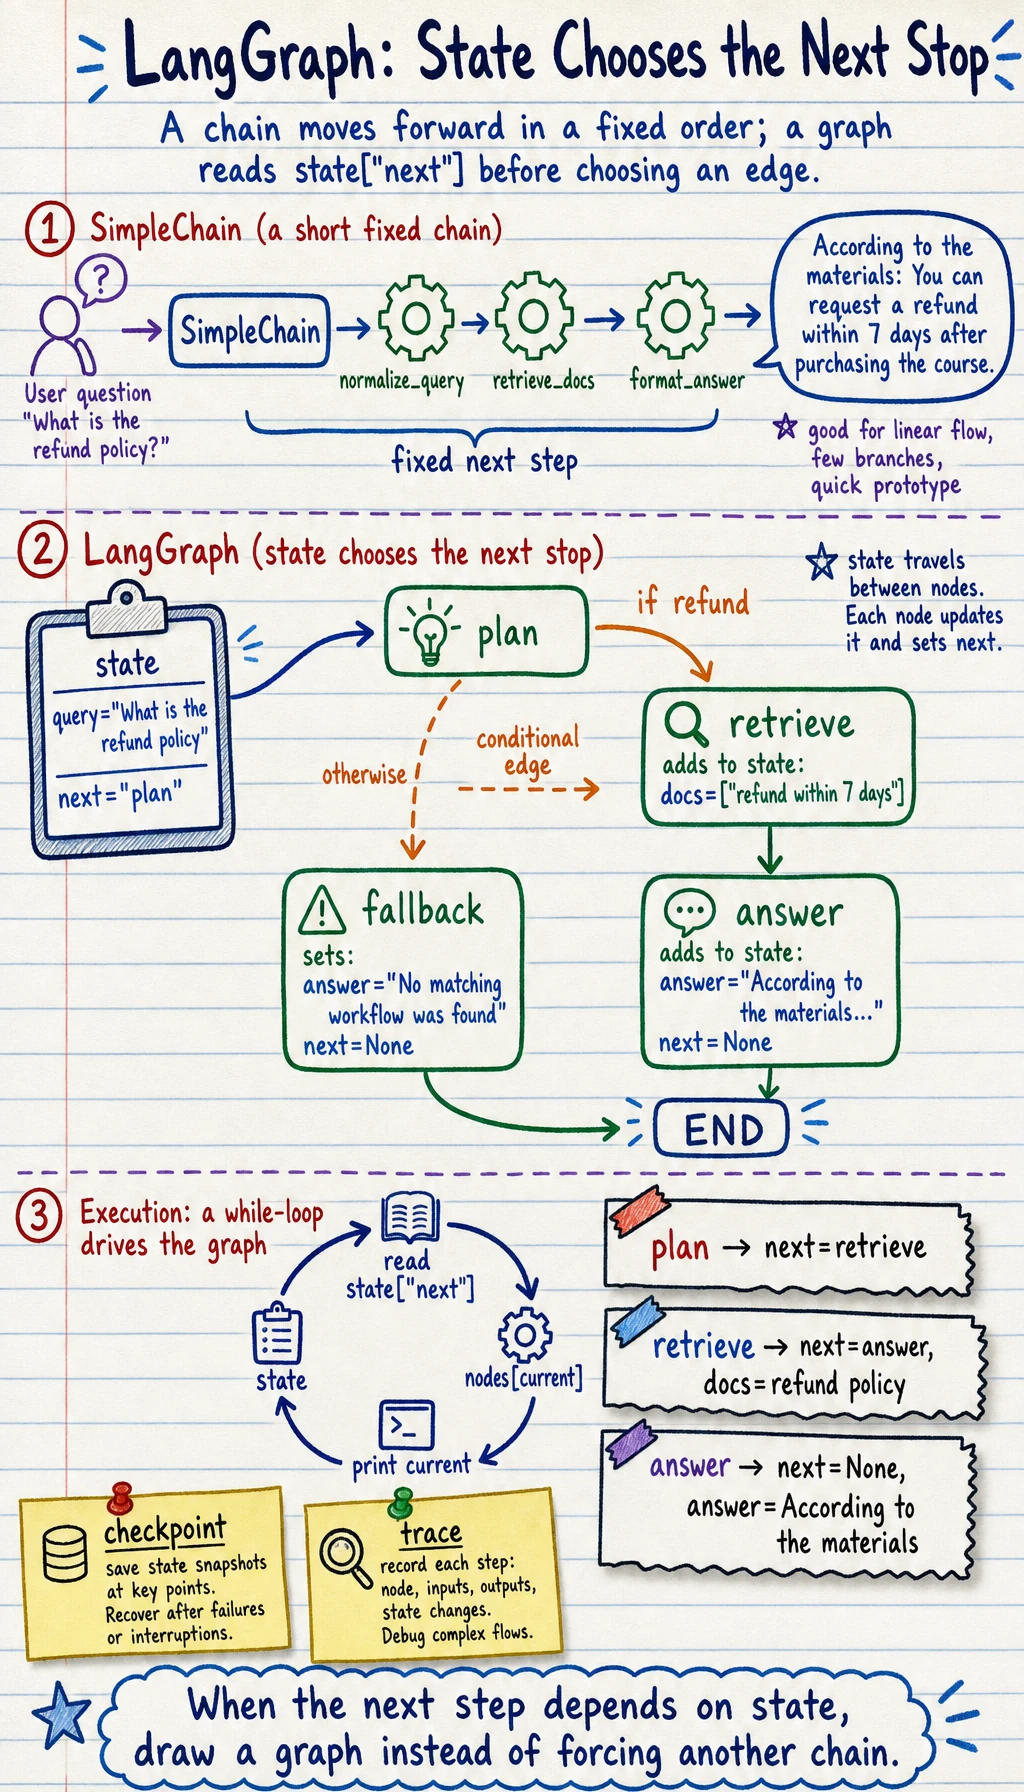 LangGraph: State Chooses the Next Stop
A chain moves forward in a fixed order; a graph
reads state["next"] before choosing an edge.
1 SimpleChain (a short fixed chain)
?
User question
"What is the
refund policy?"
SimpleChain
normalize_query
retrieve_docs
format_answer
fixed next step
According to the
materials: You can
request a refund
within 7 days after
purchasing the course.
good for linear flow,
few branches,
quick prototype
2 LangGraph (state chooses the next stop)
state travels
between nodes.
Each node updates
it and sets next.
state
query="What is the
refund policy"
next="plan"
plan
if refund
otherwise
conditional
edge
retrieve
adds to state:
docs=["refund within 7 days"]
fallback
sets:
answer="No matching
workflow was found"
next=None
answer
adds to state:
answer="According to
the materials..."
next=None
END
3 Execution: a while-loop
drives the graph
read
state["next"]
nodes[current]
print current
state
plan → next=retrieve
retrieve → next=answer,
docs=refund policy
answer → next=None,
answer=According to
the materials
checkpoint
save state snapshots
at key points.
Recover after failures
or interruptions.
trace
record each step:
node, inputs, outputs,
state changes.
Debug complex flows.
When the next step depends on state,
draw a graph instead of forcing another chain.